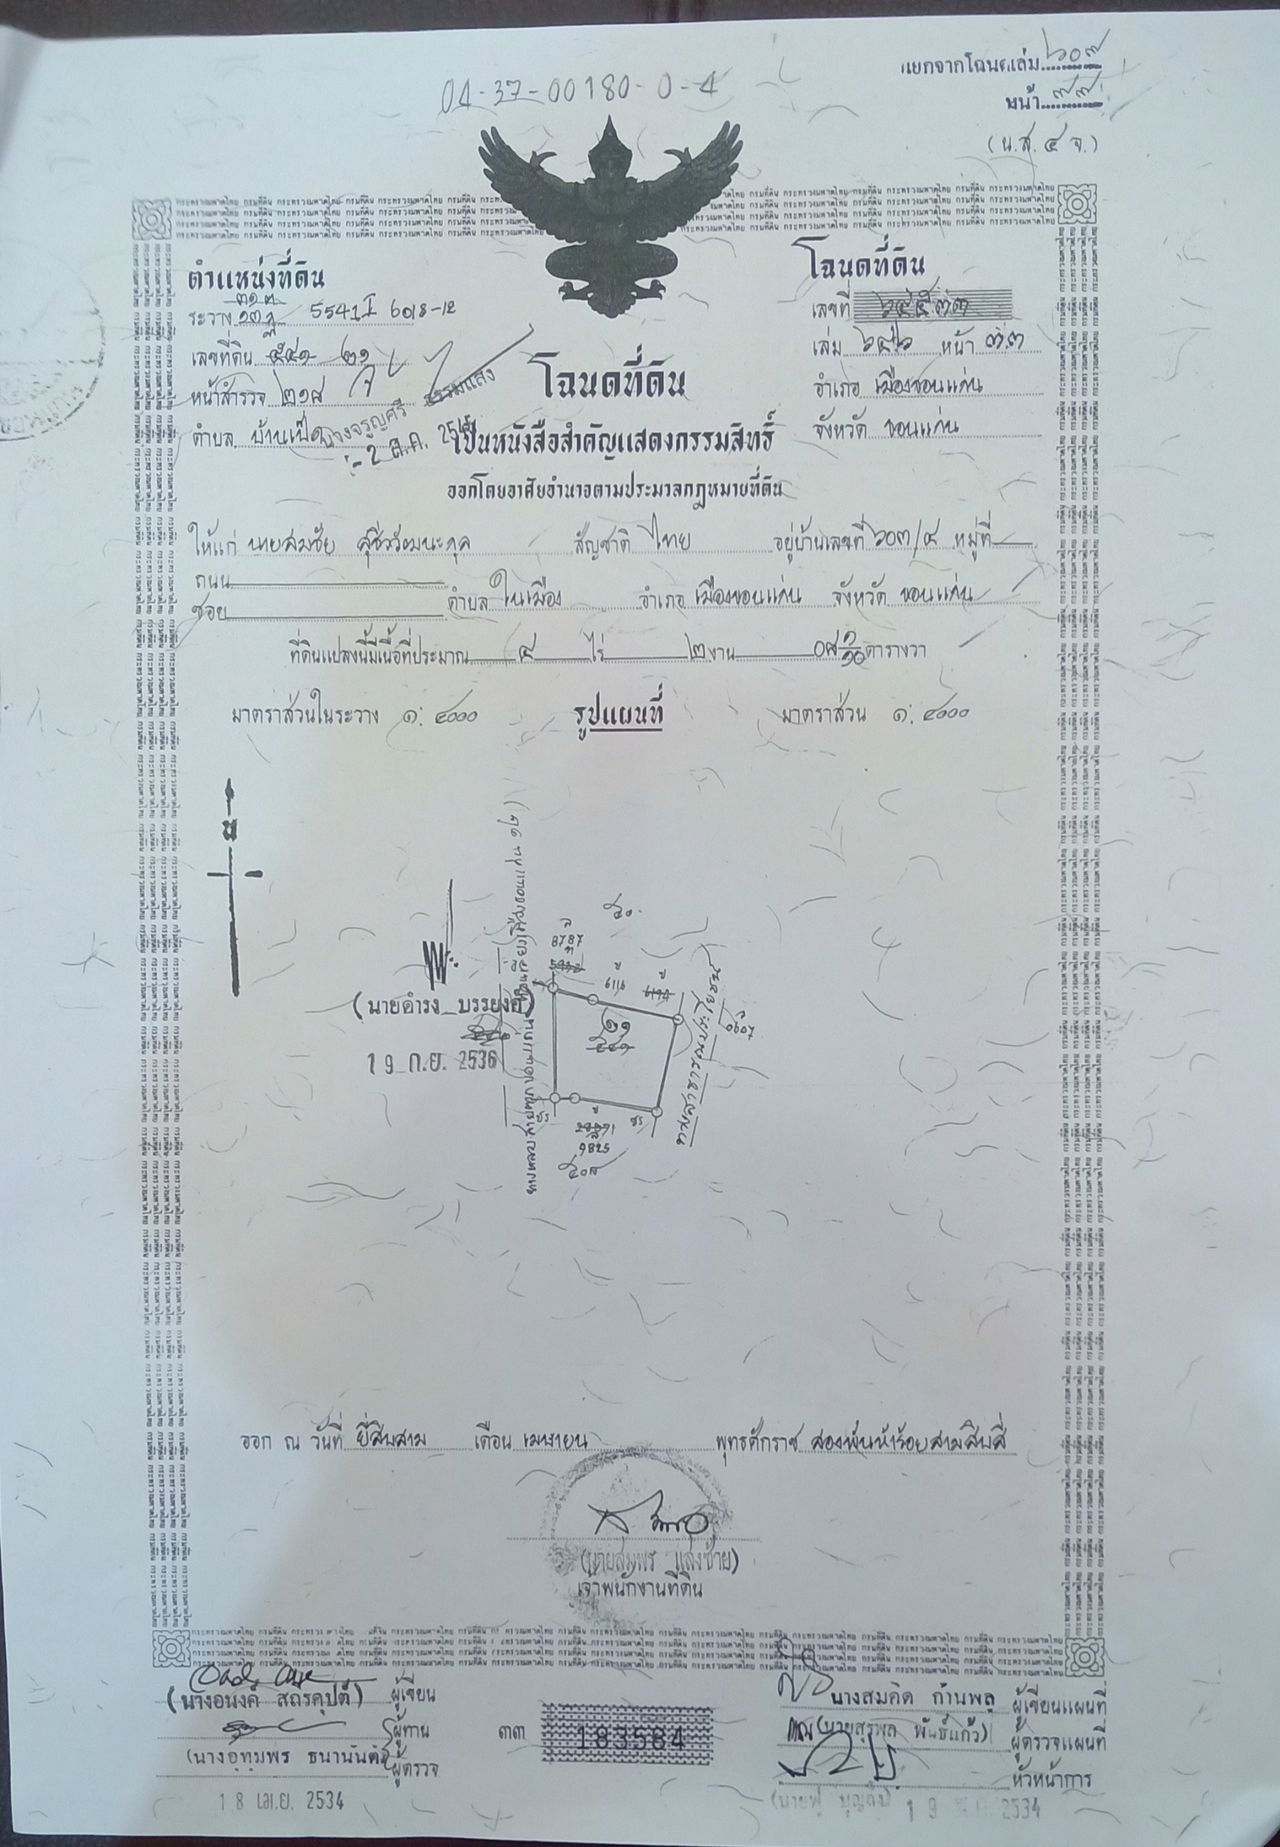 04-37-00180-0-4
แยกจากโฉนดเล่ม ๖๐๗
หน้า ๗๗
(น.ส. ๔ จ.)
ตำแหน่งที่ดิน
ระวาง 5541 I 6018-12
เลขที่ดิน ๕๔๑ ๒๑
หน้าสำรวจ ๒๑๘
ตำบล บ้านเป็ด
นางจรูญศรี
- 2 ส.ค.
โฉนดที่ดิน
เลขที่
เล่ม ๖๔๖ หน้า ๓๓
อำเภอ เมืองขอนแก่น
จังหวัด ขอนแก่น
โฉนดที่ดิน
เป็นหนังสือสำคัญแสดงกรรมสิทธิ์
ออกโดยอาศัยอำนาจตามประมวลกฎหมายที่ดิน
ให้แก่ นายสมชัย สุชีววัฒนะกุล สัญชาติ ไทย อยู่บ้านเลขที่ ๖๐๓/๔ หมู่ที่
ถนน
ซอย ตำบล ในเมือง อำเภอ เมืองขอนแก่น จังหวัด ขอนแก่น
ที่ดินแปลงนี้มีเนื้อที่ประมาณ ๔ ไร่ ๒ งาน ๐๘ ๑/๑๐ ตารางวา
มาตราส่วนในระวาง ๑: ๔๐๐๐ รูปแผนที่ มาตราส่วน ๑: ๔๐๐๐
น
8787
6116
๒๑
๕๔๑
(นายดำรง บรรยงค์)
19 ก.ย. 2536
ทางสาธารณประโยชน์
0607
9825
ออก ณ วันที่ ยี่สิบสาม เดือน เมษายน พุทธศักราช สองพันห้าร้อยสามสิบสี่
(นายสมพร แสงชาย)
เจ้าพนักงานที่ดิน
(นางอนงค์ สถิรคุปต์) ผู้เขียน
ผู้ทาน
(นางอุทุมพร ธนานันต์) ผู้ตรวจ
18 เม.ย. 2534
๓๓ 183584
นางสมคิด ก้านพลู ผู้เขียนแผนที่
(นายสุรพล พันธ์แก้ว) ผู้ตรวจแผนที่
หัวหน้าการ
19 2534